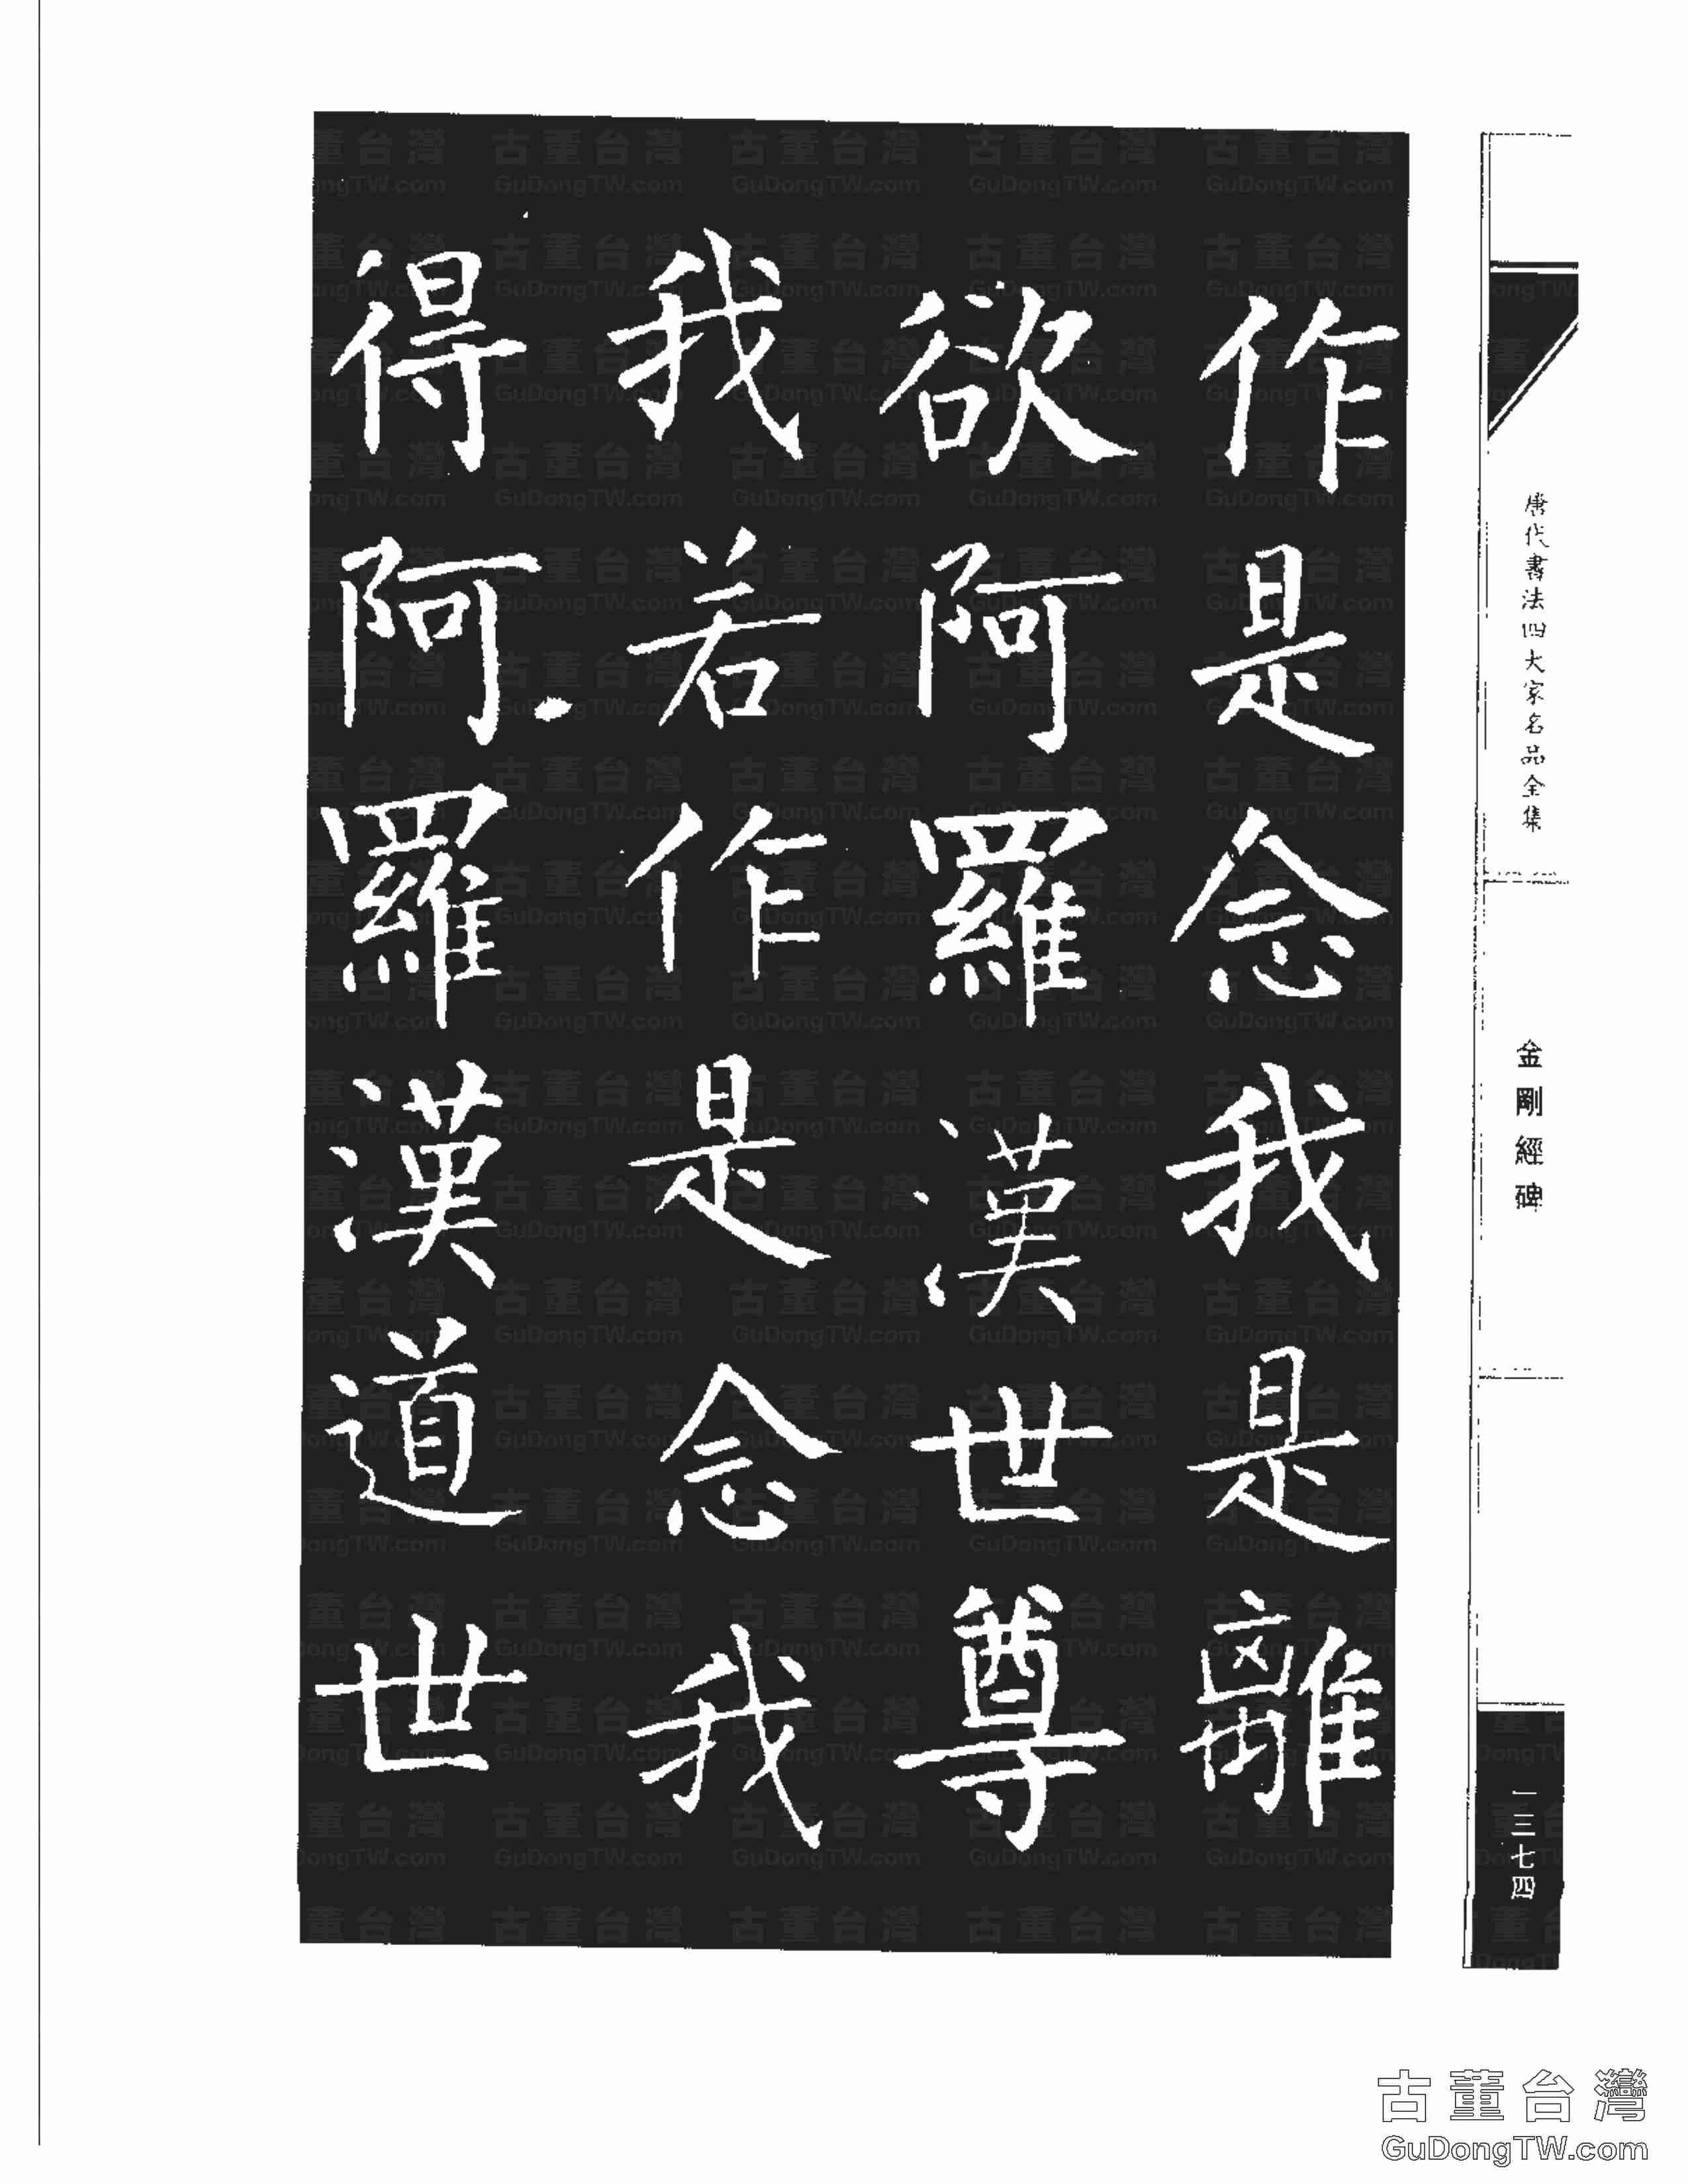 作是念我是離
欲阿羅漢世尊
我若作是念我
得阿羅漢道世
唐代書法四大家名品全集
金剛經碑
一三七四
古董台灣
GuDongTW.com